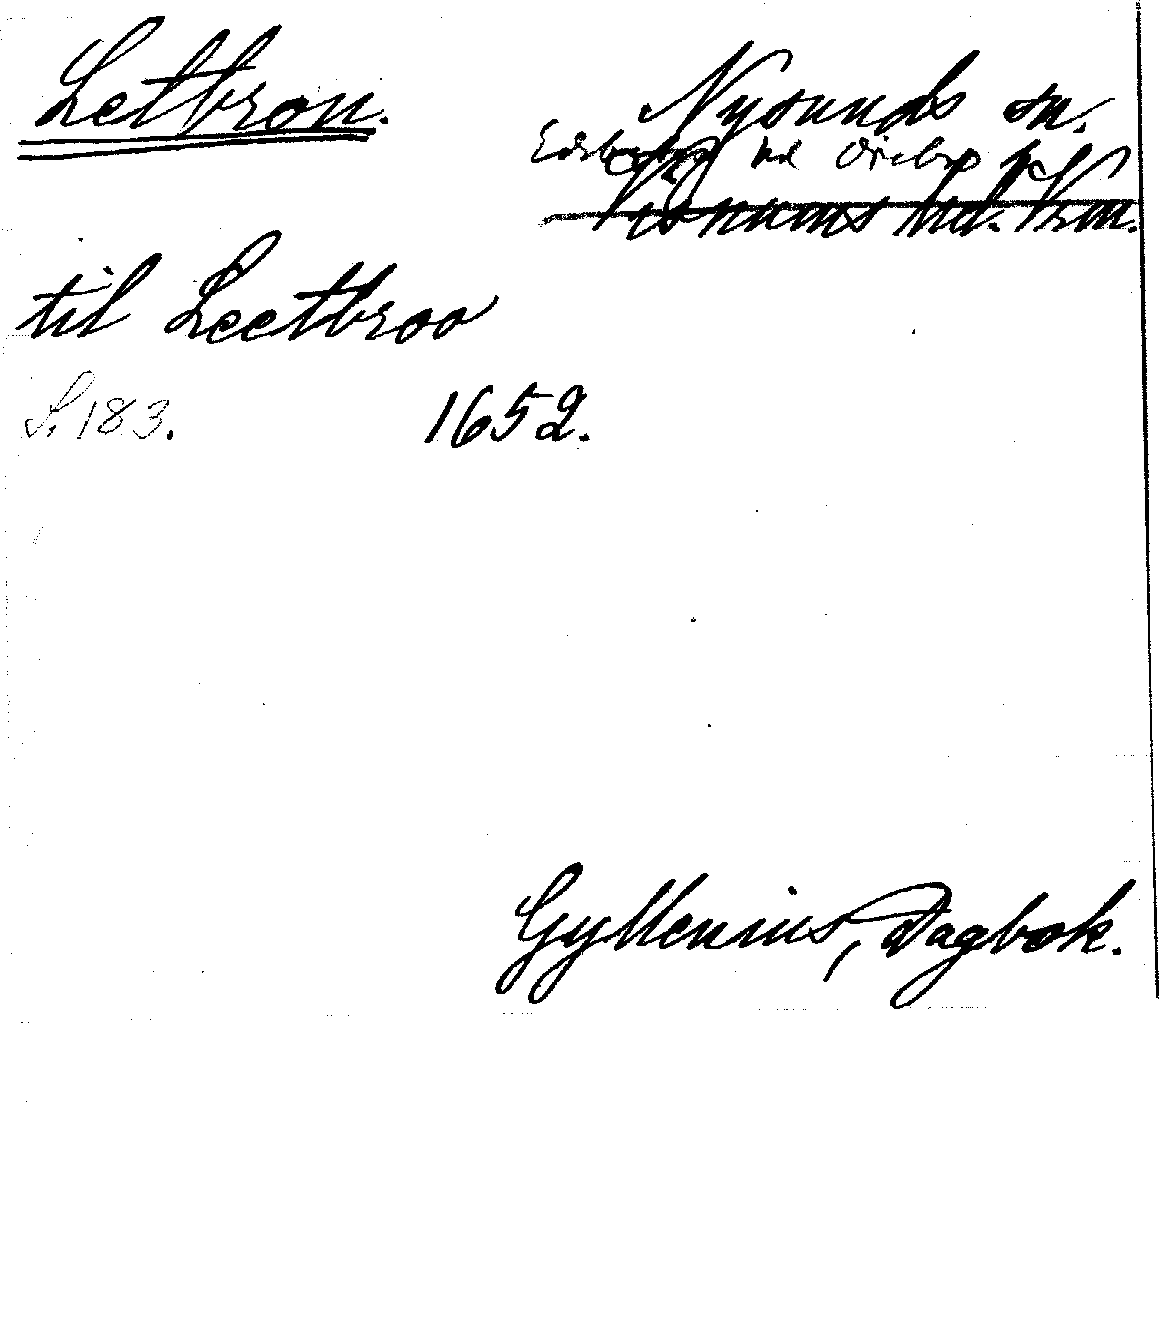 Letbron.
Nysunds sn.
Edsbergs hd Örebro l
Visnums hd. Vrm.
til Leetbroo
S. 183. 1652.
Gyllenius, Dagbok.